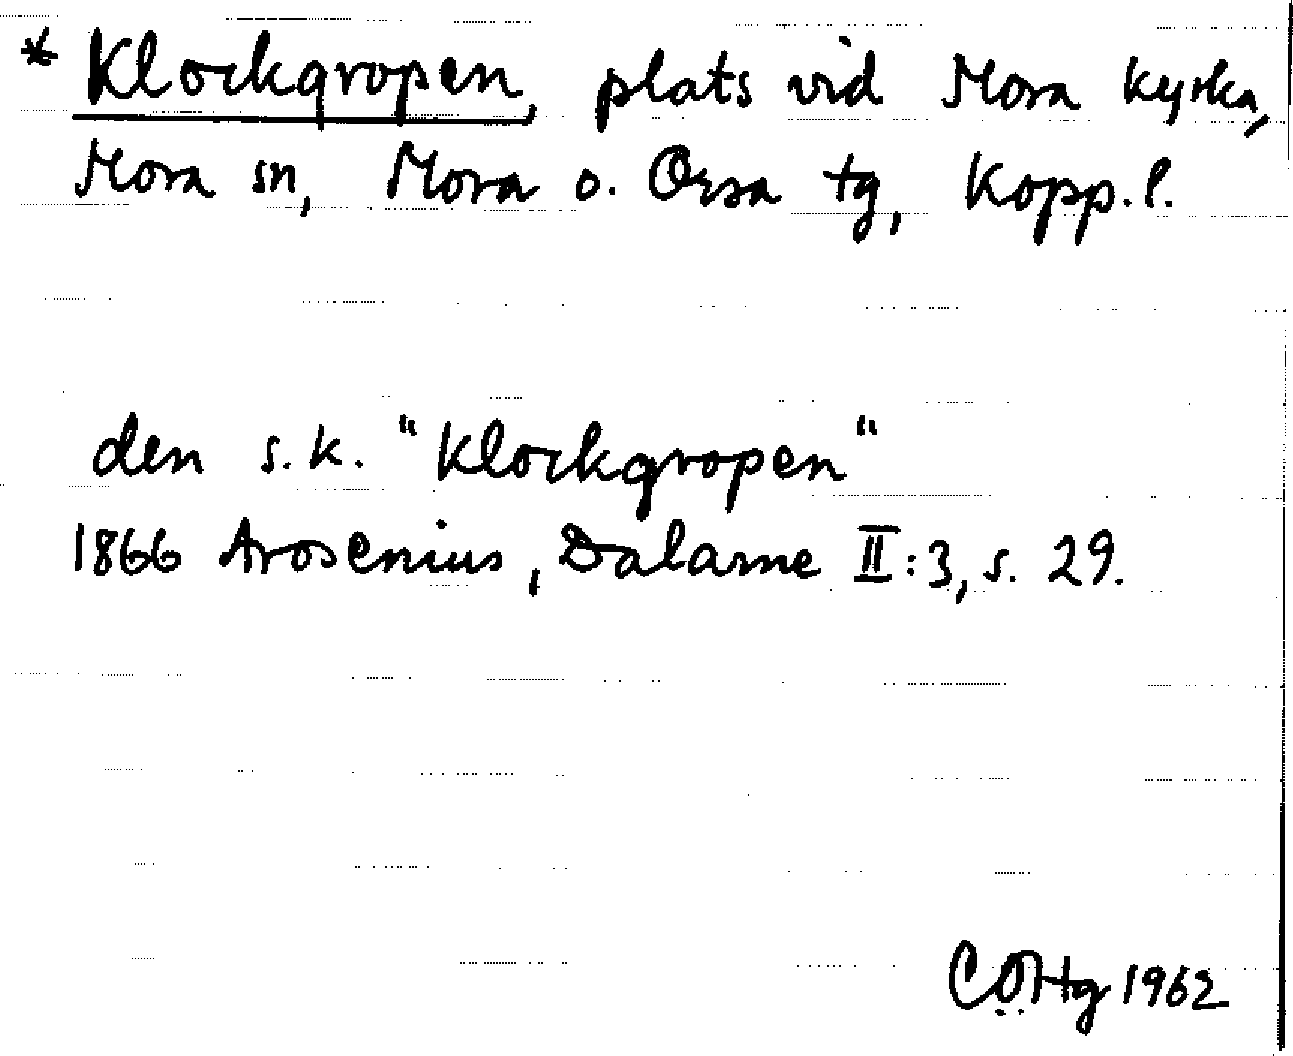 * Klockgropen, plats vid Mora kyrka,
Mora sn, Mora o. Orsa tg, Kopp. l.
den s.k. "Klockgropen"
1866 Arosenius, Dalarne II:3, s. 29.
1962